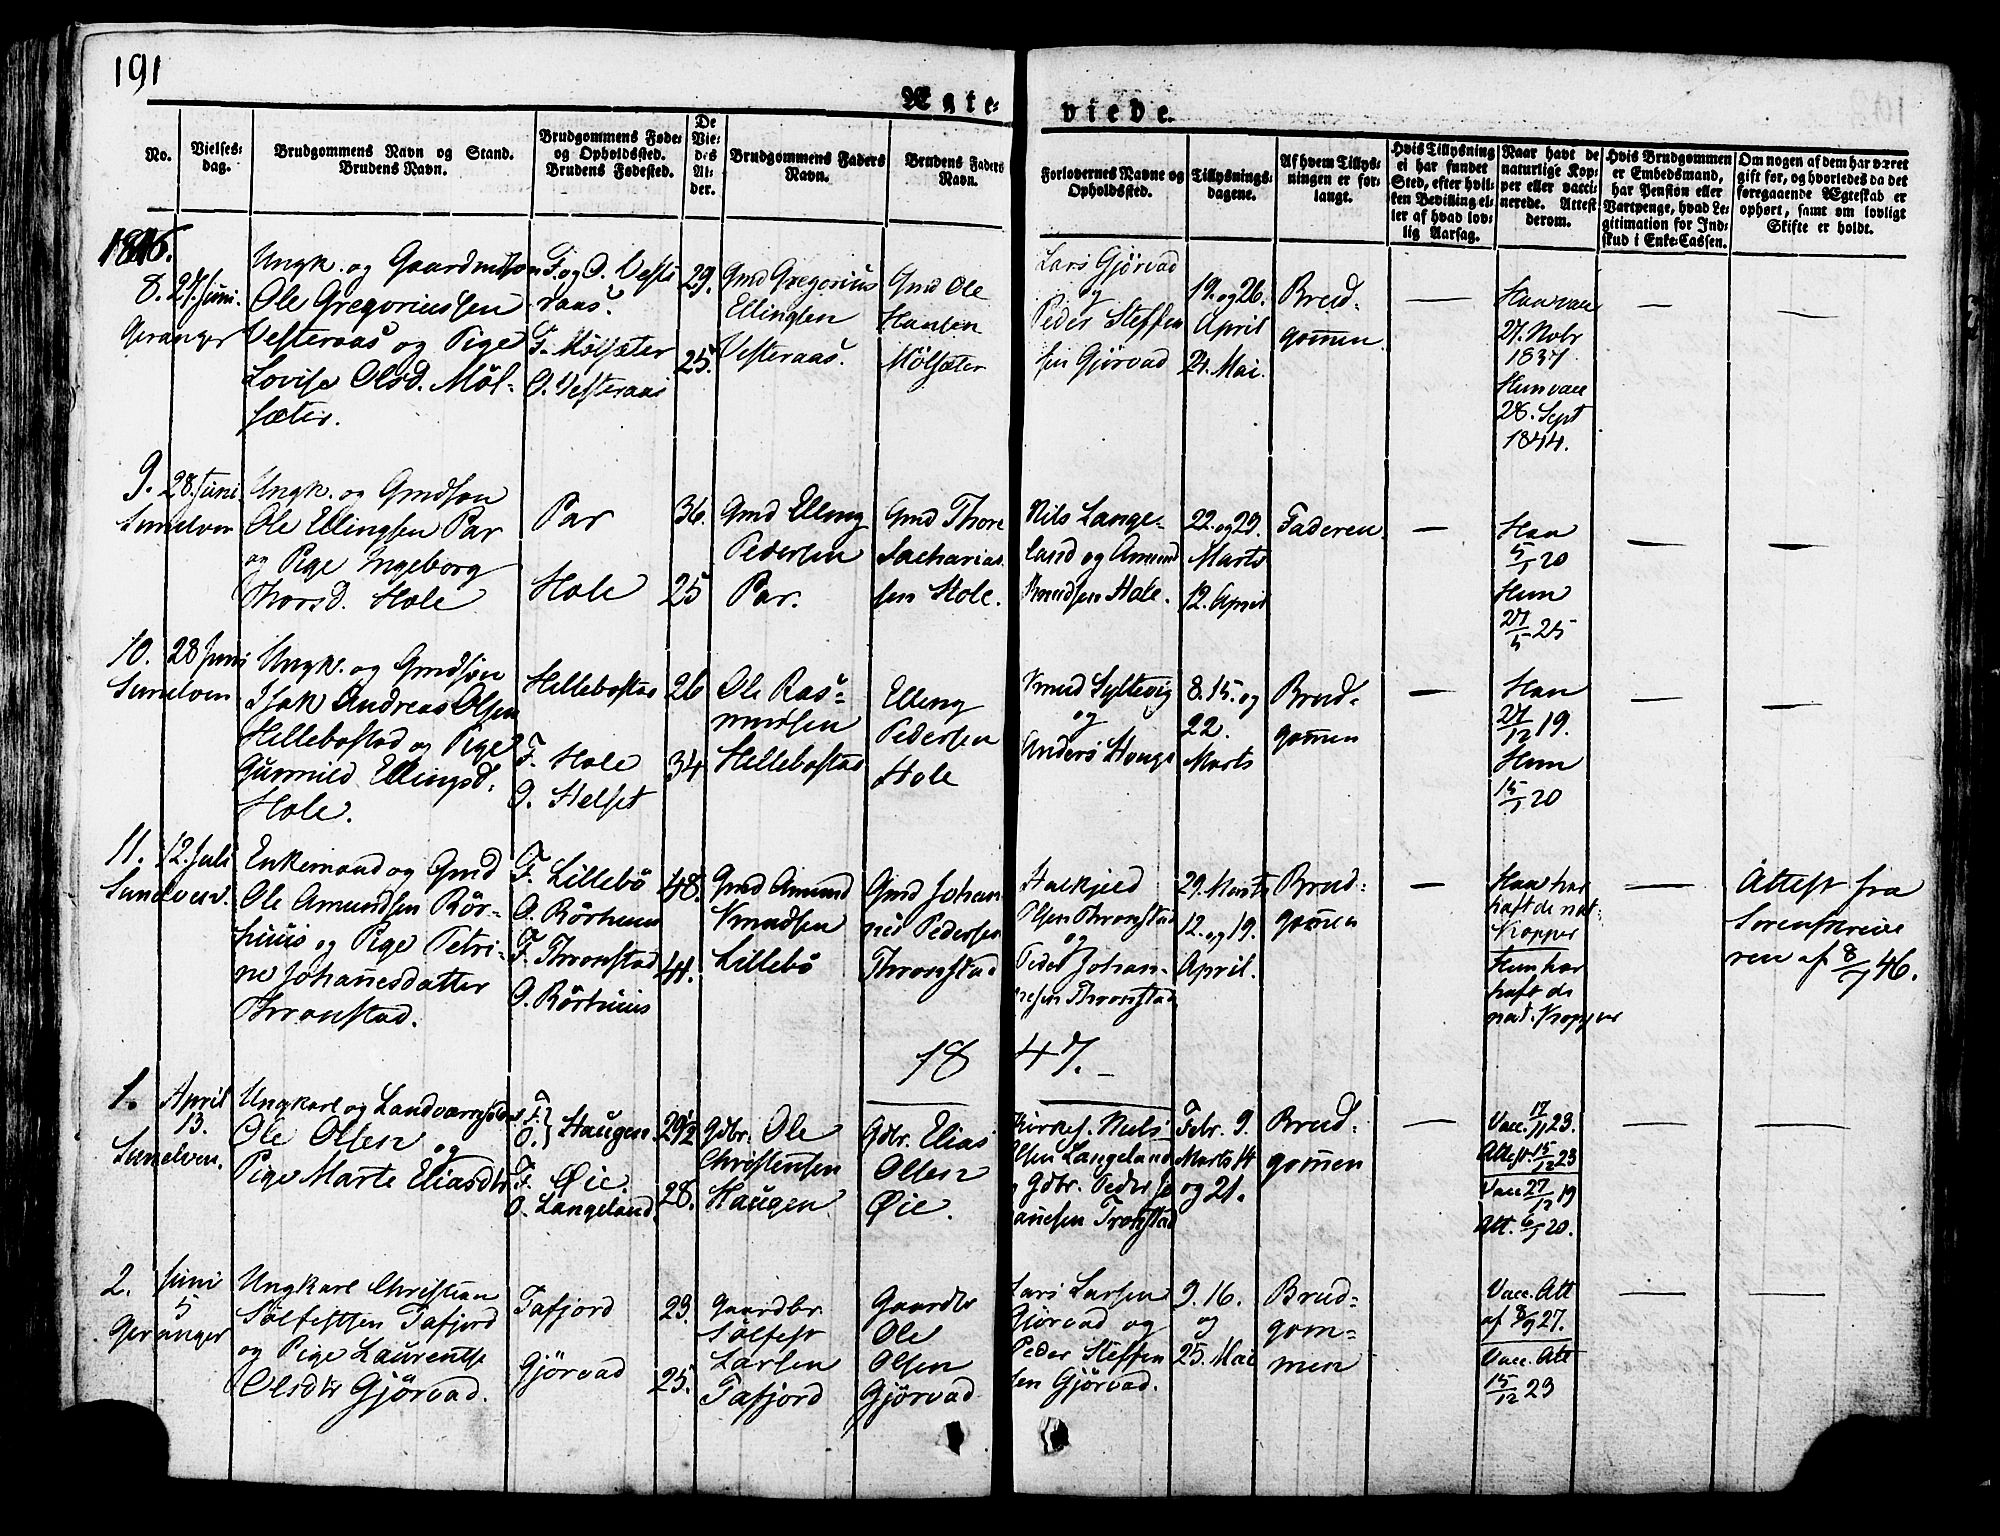 191
Ægte-
viede.
No.
Vielses-
dag.
Brudgommens Navn og Stand.
Brudens Navn.
Brudgommens Føde-
og Opholdssted.
Brudens Fødested.
De
Vie-
des
Al-
der.
Brudgommens Faders
Navn.
Brudens Faders
Navn.
Forlovernes Navne og
Opholdssted.
Tillysnings-
dagene.
Af hvem Tillys-
ningen er for-
langt.
Hvis Tillysning
ei har fundet
Sted, efter hvil-
ken Bevilling el-
ler af hvad lov-
lig Aarsag.
Naar havt de
naturlige Kop-
per eller vacci-
nerede. Attest
derom.
Hvis Brudgommen
er Embedsmand,
har Pension eller
Vartpenge, hvad Le-
gitimation for Ind-
skud i Enke-Cassen.
Om nogen af dem har været
gift før, og hvorledes da det
foregaaende Ægteskab er
ophørt, samt om lovligt
Skifte er holdt.
1846.
8. 27. Juni.
Geranger
Ungk. og Gaardmdsøn
Ole Gregoriussen
Vesteraas og Pige
Lovise Olsd. Möl-
sæter.
F. og O. Veste
raas.
F. Mölsæter
O. Vesteraas
29.
25.
Gmd Gregorius
Ellingsen
Vesteraas.
Gmd Ole
Hansen
Mölsæter
Lars Gjörvad
og
Peder Steffen
sen Gjörvad
19. og 26.
April
24. Mai.
Brud-
gom̄en.
Han vac
27. Nobr
1837
Hun vac
28. Sept
1844.
9. 28. Juni.
Sunelven
Ungk. og Gmdsøn
Ole Ellingsen Par
og Pige Ingeborg
Thorsd. Hole
Par
Hole
36.
25
Gmd Elling
Pedersen
Par.
Gmd Thore
Sacharias
sen Hole.
Nils Lange-
land og Amund
Knudsen Hole.
22. og 29.
Marts
12. April
Faderen
Han
5/1 20
Hun
27/5 25
10. 28 Juni
Sunelven
Ungk. og Gmdsøn
Isak Andreas Olsen
Hellebostad og Pige
Gunnild Ellingsd.
Hole.
Hellebostad
F. Hole
O. Helset
26
34
Ole Ras-
mussen
Hellebostad
Elling
Pedersen
Hole
Knud Syltevig
og
Anders Hauge
8. 15. og
22.
Marts
Brud-
gom̄en
Han
27/12 19.
Hun
15/1 20
11. 12. Juli
Sunelven.
Enkemand og Gmd
Ole Amundsen Rör-
huus og Pige Petri-
ne Johan̄esdatter
Thronstad.
F. Lillebö
O. Rörhuus
F. Thronstad
O. Rörhuus
48.
41.
Gmd Amund
Knudsen
Lillebö
Gmd Johan-
nes Pedersen
Thronstad
Halkjeld
Olsen Thronstad
og
Peder Johan-
nesen Thronstad
29. Marts
12. og 19.
April.
Brud-
gom̄en
Han har
haft de nat-
Kopper
Hun har
haft de
nat. Kopper
Attest fra
Sorenskrive
ren af 8/7 46.
18 47.
1. April
13.
Sunelven.
Ungkarl og Landværnsold.
Ole Olsen og
Pige Marte Eliasdtr
F.
O. } Haugen
F. Øie
O. Langeland.
29 1/2
28.
Gdbr. Ole
Christensen
Haugen
Gdbr. Elias
Olsen
Øie.
Kirkes. Niels
Olsen Langeland
og Gdbr. Peder Jo
hanesen Tronstad
Febr. 9.
Marts 14
og 21.
Brud-
gom̄en
Vacc. 17/11 23.
Attest. 15/12 23
Vacc 27/12 19
Att. 6/1 20.
2. Juni
5
Geranger
Ungkarl Christian
Sølfestsen Tafjord
og Pige Laurentse
Olsdtr Gjörvad.
Tafjord
Gjörvad
23.
25.
Gaardbr.
Sölfest
Larsen
Tafjord
Gaardbr
Ole
Olsen
Gjörvad
Lars Larsen
Gjörvad og
Peder Steffen
sen Gjörvad.
9. 16.
og
25. Mai
Brud-
gom-
men
Vacc. Att
af 8/9 27.
Vacc. Att
15/12 23